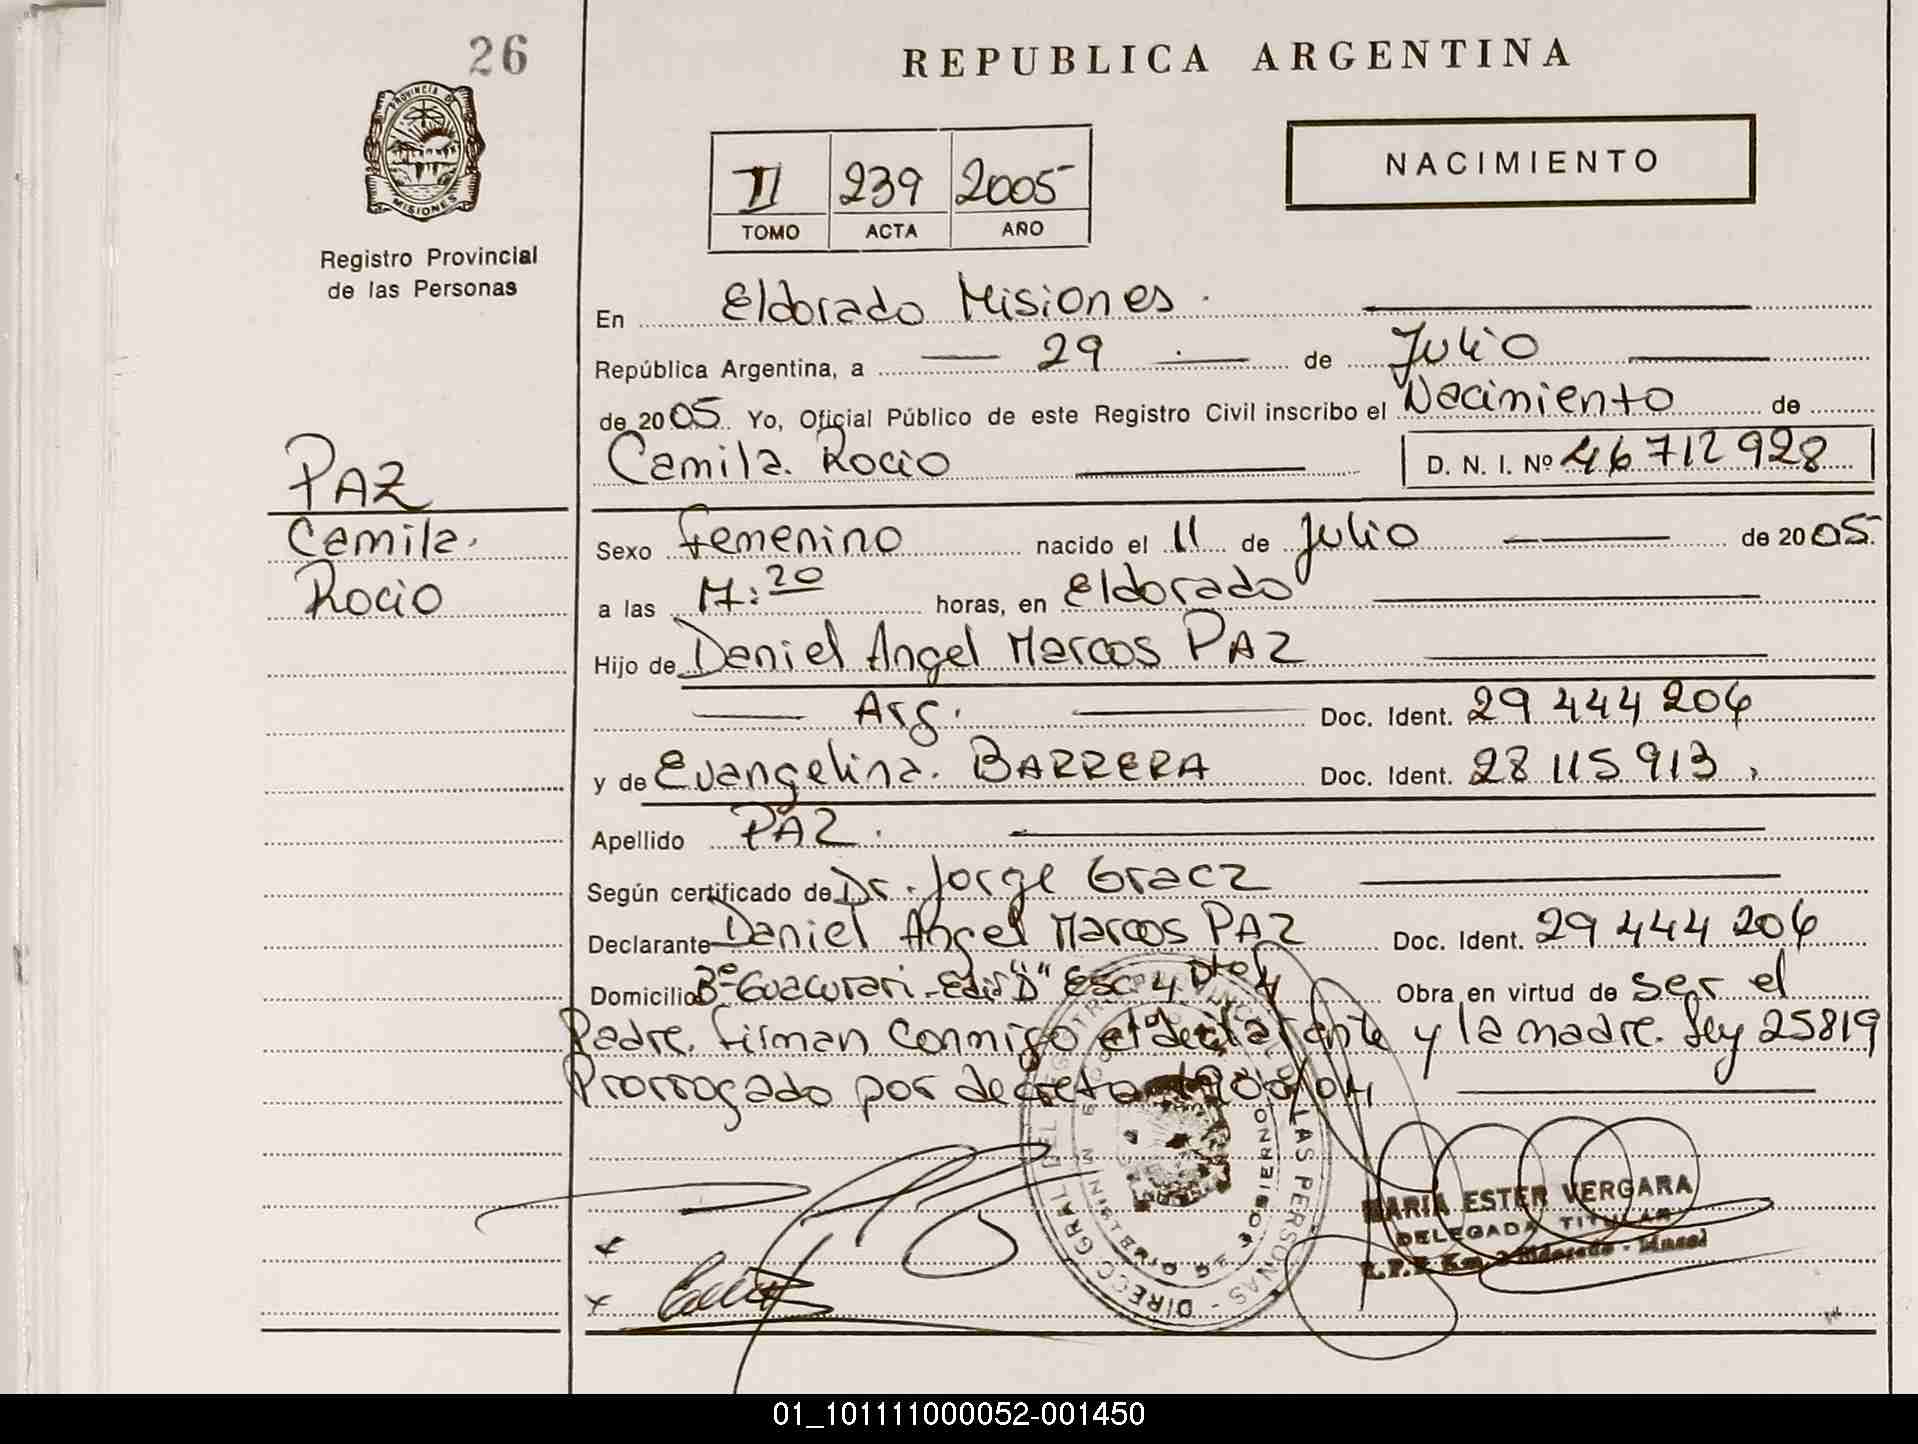 26
REPUBLICA ARGENTINA
PROVINCIA DE
MISIONES
Registro Provincial
de las Personas
II 239 2005
TOMO ACTA AÑO
NACIMIENTO
En Eldorado Misiones.
República Argentina, a 29 de Julio
de 2005. Yo, Oficial Público de este Registro Civil inscribo el Nacimiento de
Camila. Rocio D. N. I. Nº 46712928
PAZ
Camila.
Rocio
Sexo Femenino nacido el 11 de Julio de 2005.
a las 17:20 horas, en Eldorado
Hijo de Daniel Angel Marcos PAZ
Arg. Doc. Ident. 29 444 206
y de Evangelina. BARRERA Doc. Ident. 28 115 913,
Apellido PAZ.
Según certificado de Dr. Jorge Gracz
Declarante Daniel Angel Marcos PAZ Doc. Ident. 29 444 206
Domicilio Bº Guacurari - Edif "D" Esc 4 Dto 4 Obra en virtud de ser el
Padre. Firman conmigo el declarante y la madre. Ley 25819
Prorrogado por decreto
MARIA ESTER VERGARA
DELEGADA TITULAR
01_101111000052-001450